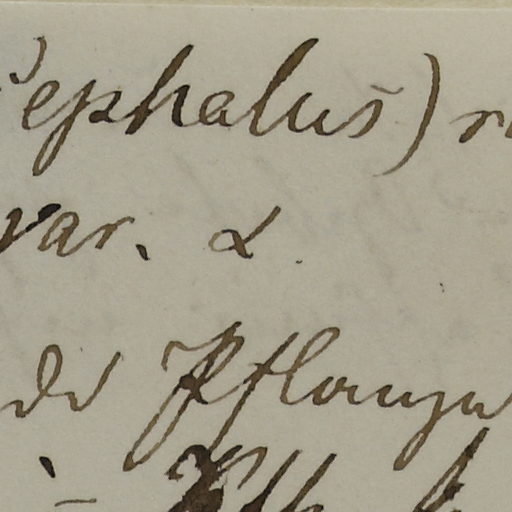 Cephalus) r
var. α
de Pflanze